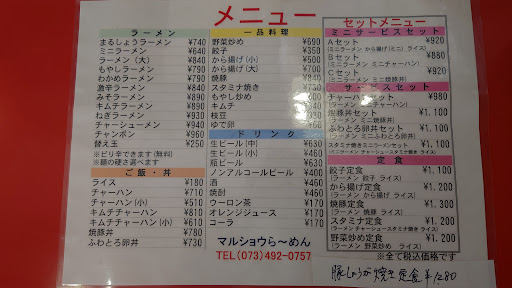 メニュー
ラーメン
まるしょうラーメン ¥740
ミニラーメン ¥640
ラーメン（大） ¥840
もやしラーメン ¥840
わかめラーメン ¥840
激辛ラーメン ¥840
みそラーメン ¥890
キムチラーメン ¥890
ねぎラーメン ¥940
チャーシューメン ¥940
チャンポン ¥960
替え玉 ¥250
※ピリ辛できます(無料)
※麺の硬さ選べます
ご飯・丼
ライス ¥180
チャーハン ¥710
チャーハン(小) ¥510
キムチチャーハン ¥810
キムチチャーハン(小) ¥610
焼豚丼 ¥730
ふわとろ卵丼 ¥730
一品料理
野菜炒め ¥690
餃子 ¥350
から揚げ(小) ¥500
から揚げ(大) ¥700
焼豚
スタミナ焼き
もやし炒め
キムチ
枝豆
ゆで卵
ドリンク
生ビール(中) ¥630
生ビール(小)
瓶ビール
ノンアルコールビール ¥400
酒
焼酎
ウーロン茶
オレンジジュース
コーラ
マルショウら～めん
TEL(073)492-0757
セットメニュー
ミニサービスセット
Aセット ¥920
(ミニラーメン から揚げ(ミニ) ライス)
Bセット ¥880
(ミニラーメン ミニチャーハン)
Cセット ¥920
(ミニラーメン ミニ焼豚丼)
サービスセット
チャーハンセット ¥980
(ラーメン ミニチャーハン)
焼豚丼セット ¥1,100
(ラーメン ミニ焼豚丼)
ふわとろ卵丼セット ¥1,100
(ラーメン ミニふわとろ卵丼)
スタミナ焼きミニラーメンセット ¥1,100
(ミニラーメン チャーシュースタミナ焼き ライス)
定食
餃子定食 ¥1,100
(ラーメン 餃子 ライス)
から揚げ定食 ¥1,200
(ラーメン から揚げ ライス)
焼豚定食 ¥1,300
(ラーメン 焼豚 ライス)
スタミナ定食 ¥1,200
野菜炒め定食 ¥1,200
(ラーメン 野菜炒め ライス)
※全て税込価格です
豚しょうが焼き定食 ¥1280